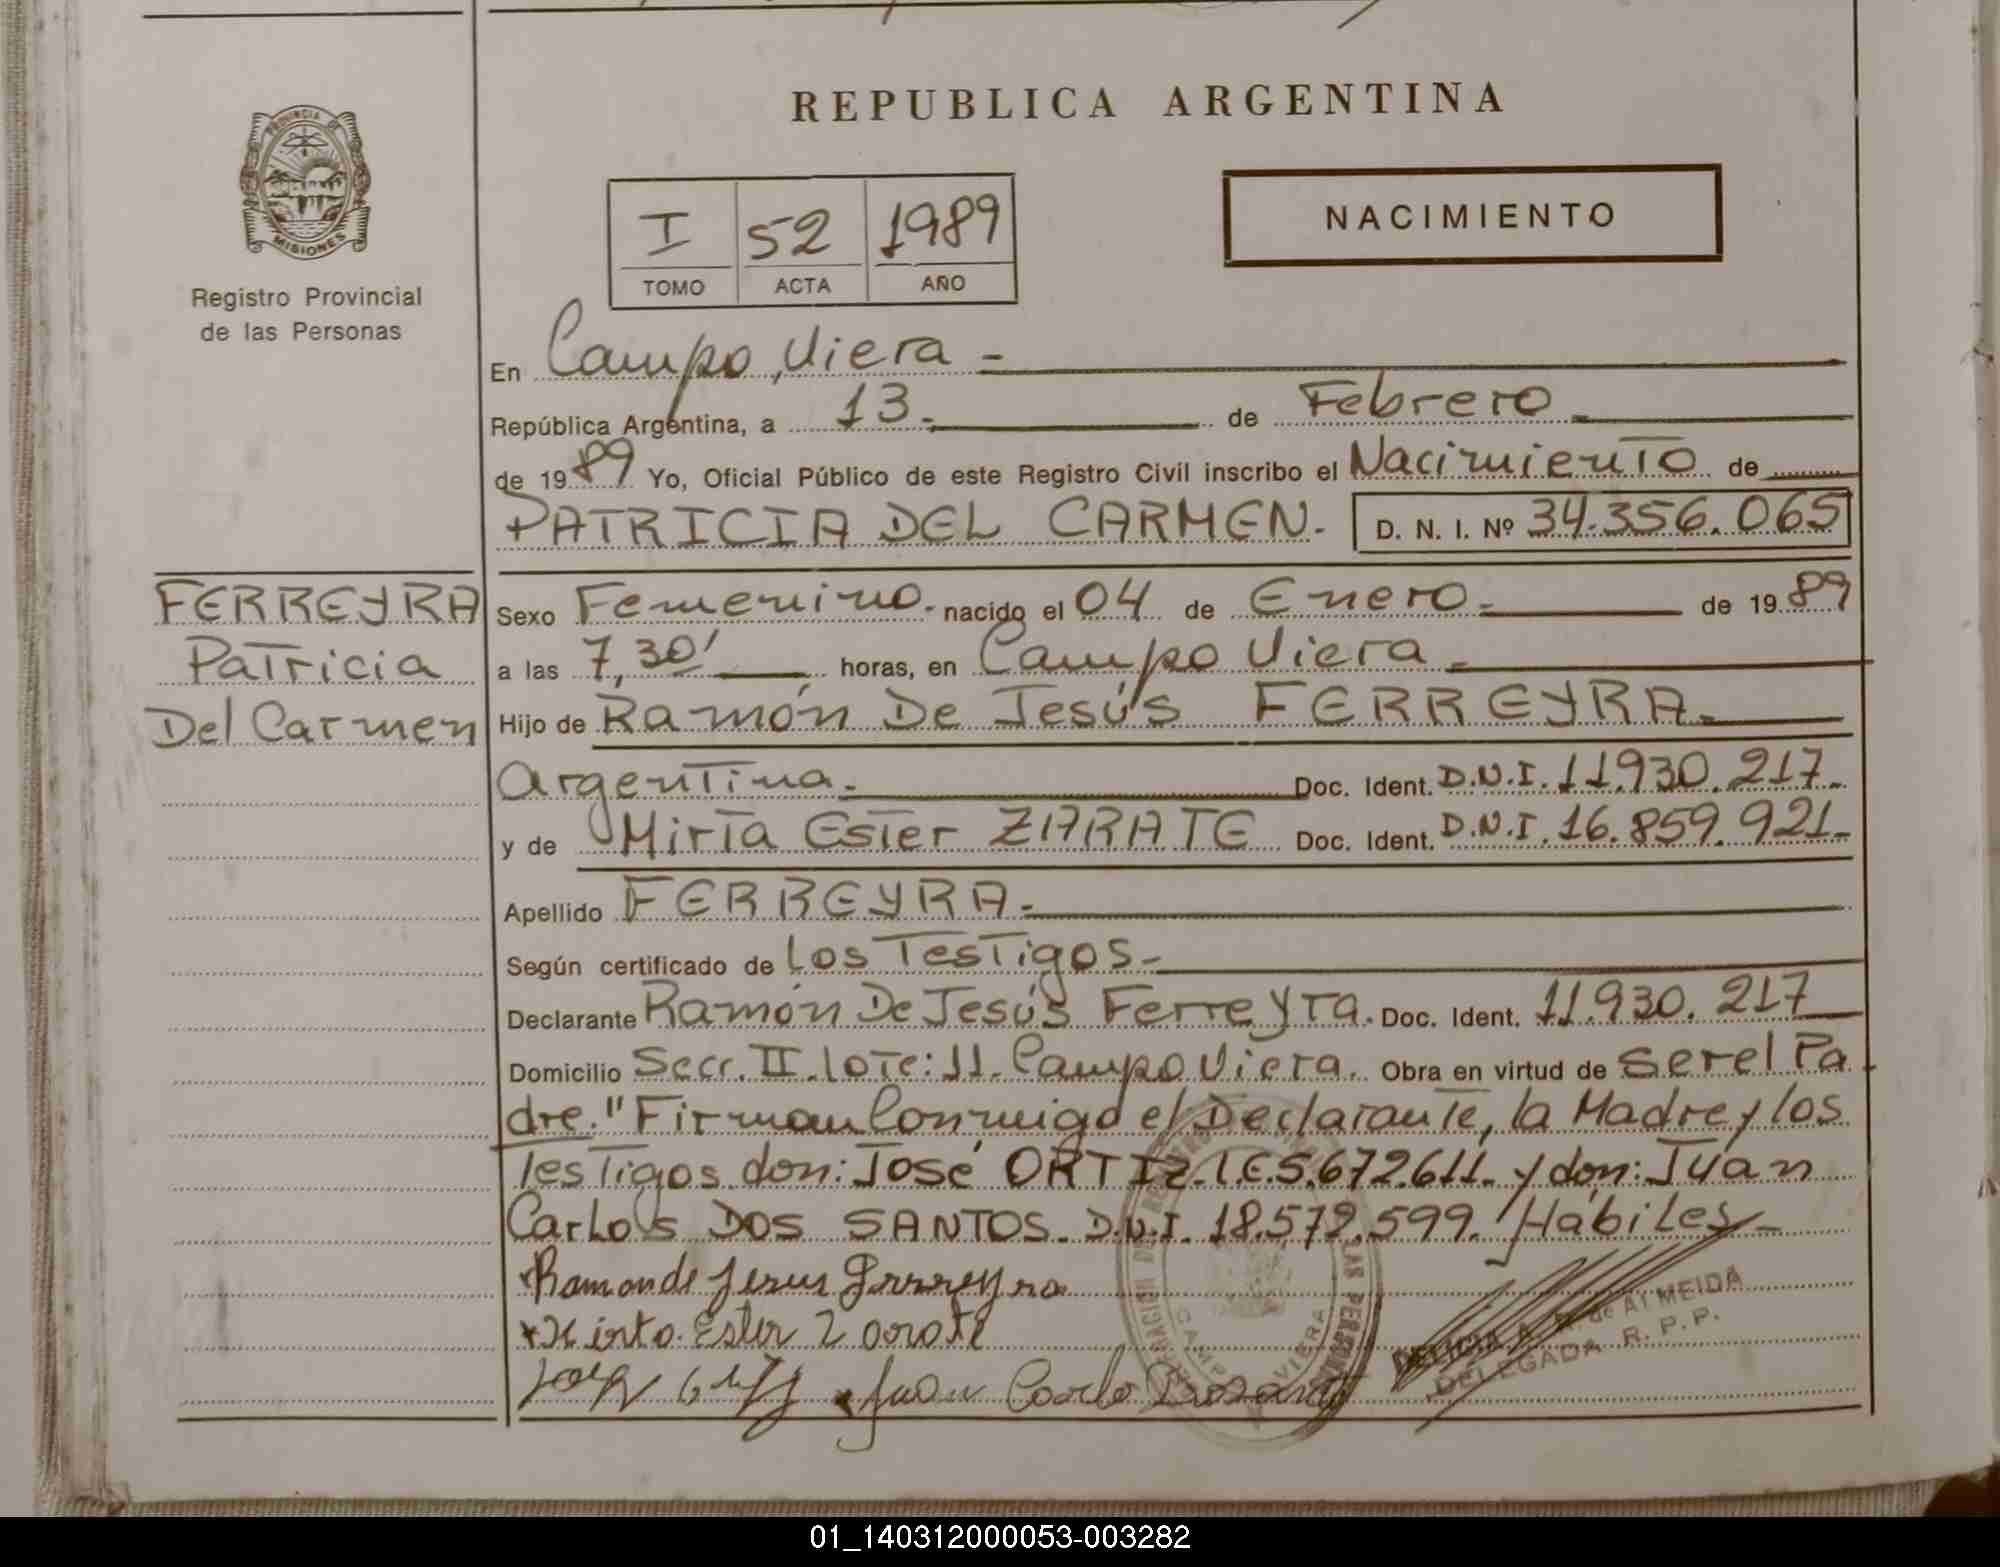 REPUBLICA ARGENTINA
PROVINCIA DE
MISIONES
Registro Provincial
de las Personas
I 52 1989
TOMO ACTA AÑO
NACIMIENTO
En Campo Viera -
República Argentina, a 13.- de Febrero.-
de 1989 Yo, Oficial Público de este Registro Civil inscribo el Nacimiento de
PATRICIA DEL CARMEN.- D. N. I. Nº 34.356.065
FERREYRA
Patricia
Del Carmen
Sexo Femenino.- nacido el 04 de Enero.- de 1989
a las 7,30' horas, en Campo Viera.-
Hijo de Ramón De Jesús FERREYRA.-
Argentina.- Doc. Ident. D.N.I. 11.930.217.-
y de Mirta Ester ZARATE Doc. Ident. D.N.I. 16.859.921.-
Apellido FERREYRA.-
Según certificado de Los Testigos.-
Declarante Ramón De Jesús Ferreyra. Doc. Ident. 11.930.217
Domicilio Secc. II. Lote: 11. Campo Viera. Obra en virtud de ser el Pa
dre." Firman Conmigo el Declarante, la Madre y los
Testigos don: José ORTIZ. L.E. 5.672.611.- y don: Juan
Carlos DOS SANTOS. D.N.I. 18.572.599. Hábiles.-
Ramon de Jesus Ferreyra
Mirta Ester Zarate
Juan Carlo
DELICIA A. R. de ALMEIDA
DELEGADA R. P. P.
LAS PERSONAS
CAMPO VIERA
01_140312000053-003282